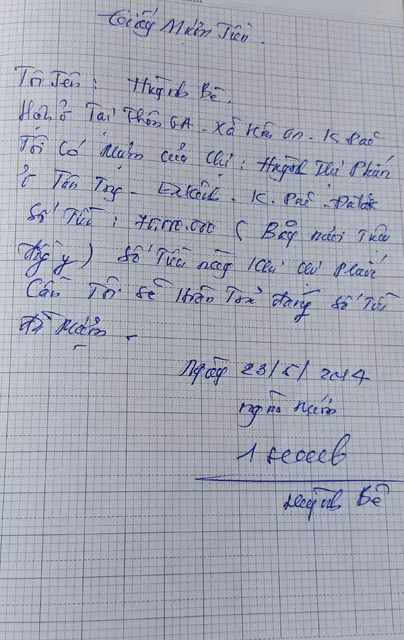 Giấy Mượn Tiền.
Tôi Tên: Huỳnh Bê.
Hiện ở Tại Thôn 6A - Xã Hòa An - K. Pắc
Tôi có Mượn của Chị: Huỳnh Thị Phấn
ở Tân - K. Pắc - Đaklak
Số Tiền: 70.000.000 ( Bảy mươi Triệu
đồng y ) Số Tiền này Khi chị Phấn
Cần Tôi Sẽ Hoàn Trả đúng Số Tiền
Đã Mượn.
Ngày 23/5/2014
người Mượn
Huỳnh Bê